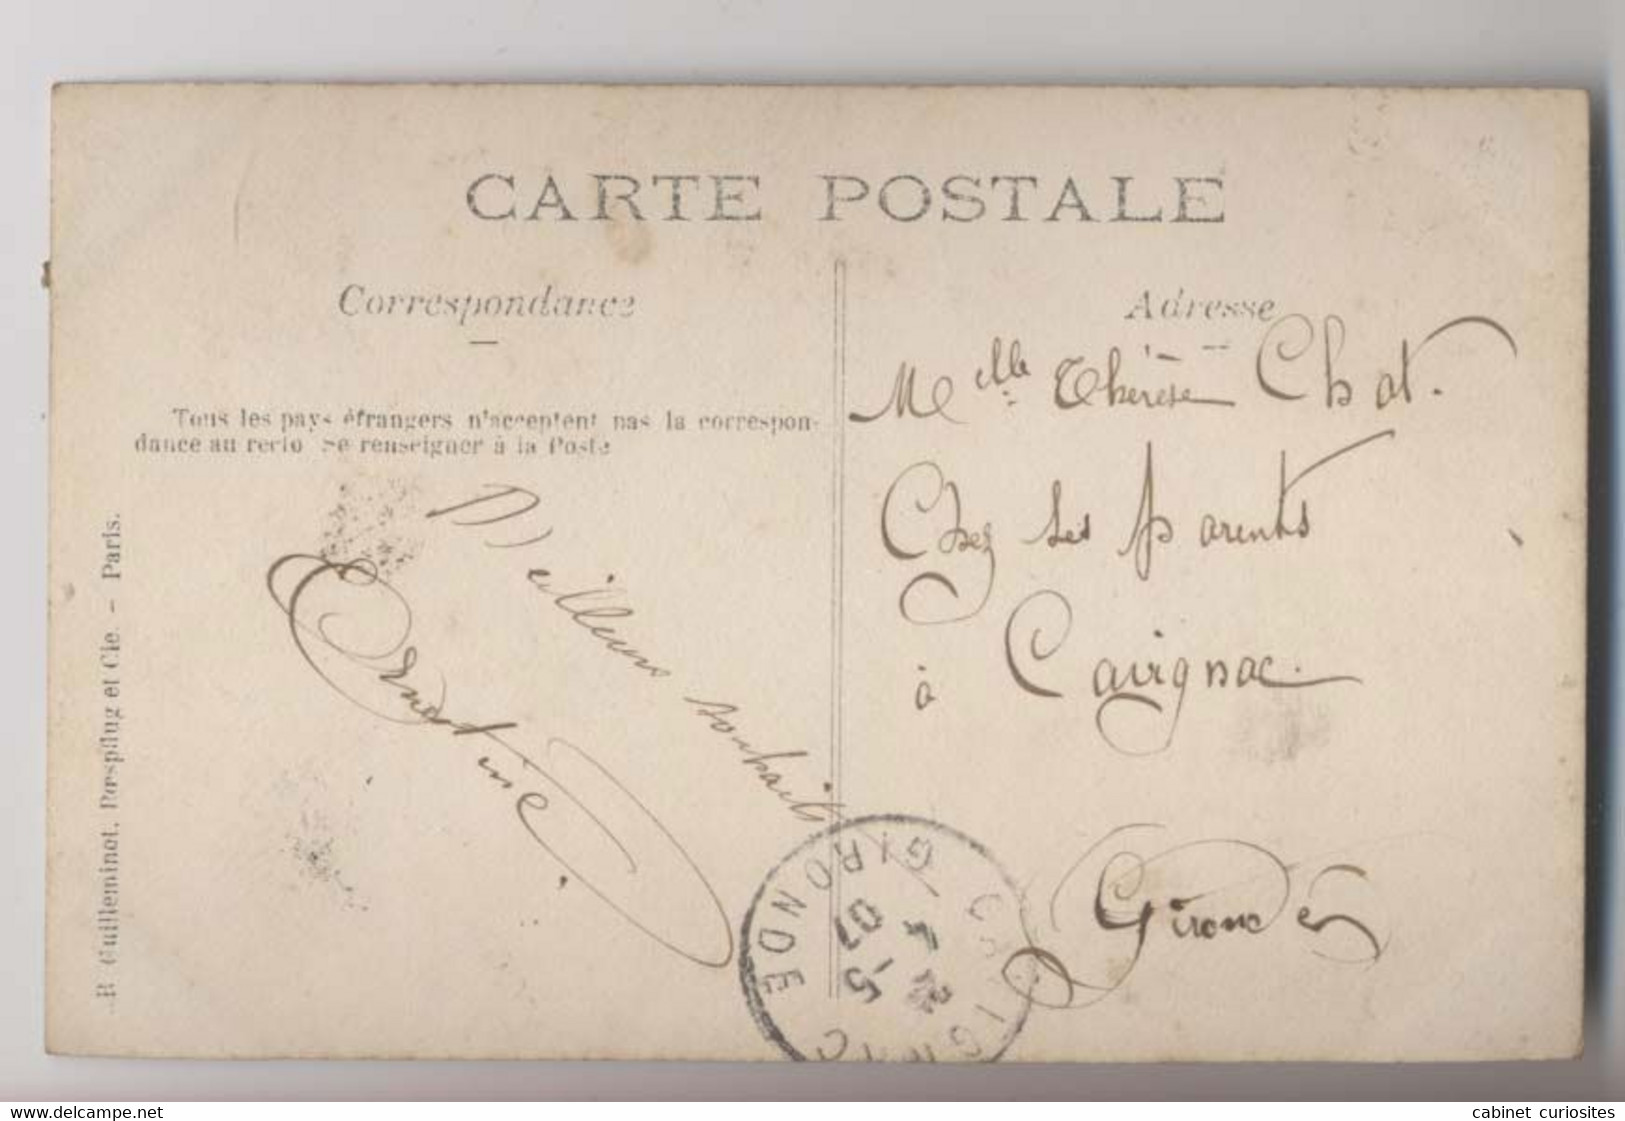 CARTE POSTALE
Correspondance
Tous les pays étrangers n'acceptent pas la correspon-
dance au recto Se renseigner à la Poste
Meilleurs souhaits
Ernestine.
R. Guilleminot, Bœspflug et Cie. – Paris.
Adresse
Melle Thérèse Chat.
Chez ses parents
à Cavignac.
Gironde
CAVIGNAC
GIRONDE
5
07
www.delcampe.net
cabinet_curiosites